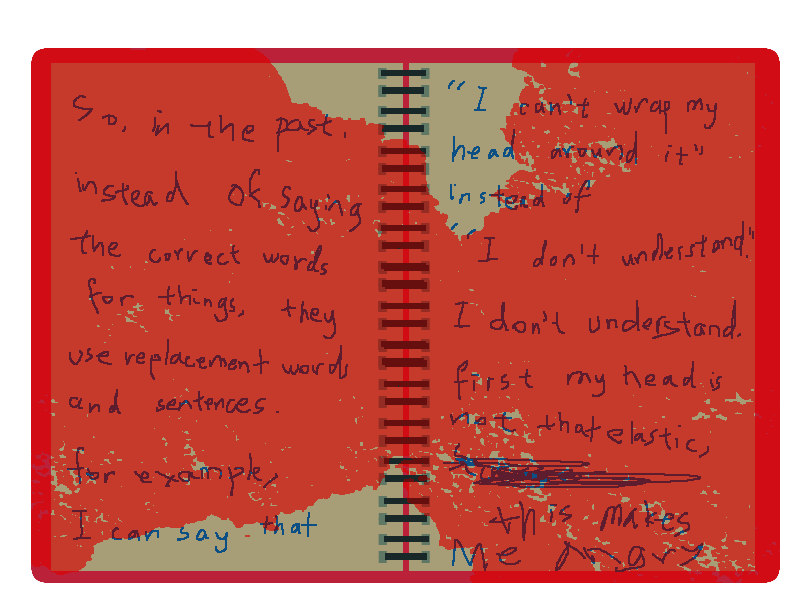 So, in the past,
instead of saying
the correct words
for things, they
use replacement words
and sentences.
for example,
I can say that
"I can't wrap my
head around it"
instead of
"I don't understand".
I don't understand.
first my head is
not that elastic,
this makes
Me Angry